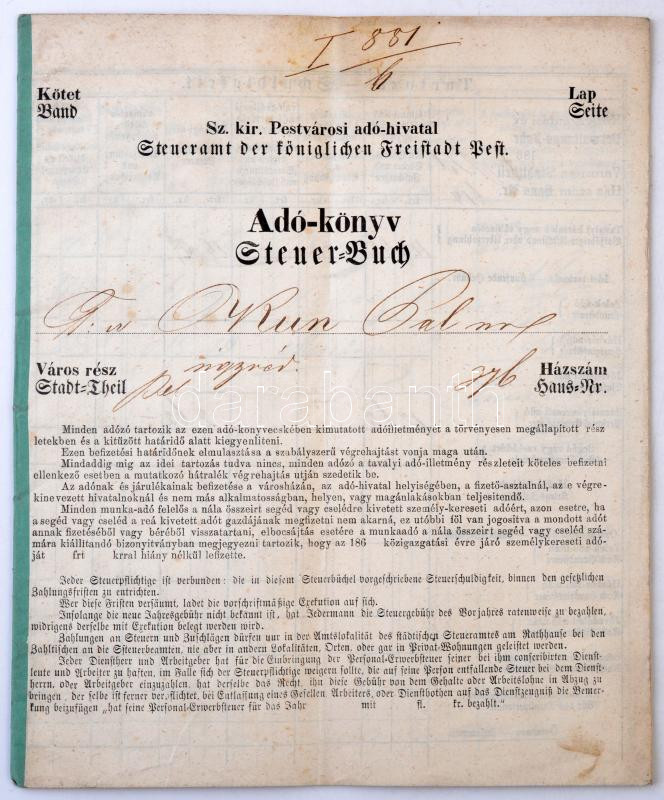 I 881/6
Kötet
Band
Lap
Seite
Sz. kir. Pestvárosi adó-hivatal
Steueramt der königlichen Freistadt Pest.
Adó-könyv
Steuer=Buch
Kun Pal
Város rész
Stadt=Theil
Házszám
Haus=Nr.
376
darabanth
Minden adózó tartozik az ezen adó-konyvecskében kimutatott adóilletményét a törvényesen megállapított rész
letekben és a kitüzött határidő alatt kiegyenliteni.
Ezen befizetési határidőnek elmulasztása a szabályszerű végrehajtást vonja maga után.
Mindaddig mig az idei tartozás tudva nincs, minden adózó a tavalyi adó-illetmény részleteit köteles befizetni
ellenkező esetben a mutatkozó hátralék végrehajtás utján szedetik be.
Az adónak és járulékainak befizetése a városházán, az adó-hivatal helyiségében, a fizető-asztalnál, az e végre-
kinevezett hivatalnoknál és nem más alkalmatosságban, helyen, vagy magánlakásokban teljesitendő.
Minden munka-adó felelős a nála összeirt segéd vagy cselédre kivetett személy-kereseti adóért, azon esetre, ha
a segéd vagy cseléd a reá kivetett adót gazdájának megfizetni nem akarná, ez utóbbi föl van jogositva a mondott adót
annak fizetéséből vagy béréből visszatartani, elbocsájtás esetére a munkaadó a nála összeirt segéd vagy cseléd szá-
mára kiállitandó bizonyitványban megjegyezni tartozik, hogy az 186 közigazgatási évre járó személykereseti adó-
ját frt krral hiány nélkül lefizette.
Jeder Steuerpflichtige ist verbunden: die in diesem Steuerbüchel vorgeschriebene Steuerschuldigkeit, binnen den gesetzlichen
Zahlungsfristen zu entrichten.
Wer diese Fristen versäumt, ladet die vorschriftmäßige Exekution auf sich.
Insolange die neue Jahresgebühr nicht bekannt ist, hat Jedermann die Steuergebühr des Vorjahres ratenweise zu bezahlen,
widrigens derselbe mit Exekution belegt werden wird.
Zahlungen an Steuern und Zuschlägen dürfen nur in der Amtslokalität des städtischen Steueramtes am Rathhause bei den
Zahltischen an die Steuerbeamten, nie aber in andern Lokalitäten, Orten, oder gar in Privat=Wohnungen geleistet werden.
Jeder Dienstherr und Arbeitgeber hat für die Einbringung der Personal=Erwerbsteuer seiner bei ihm conscribirten Dienst-
leute und Arbeiter zu haften, im Falle sich der Steuerpflichtige weigern sollte, die auf seine Person entfallende Steuer bei dem Dienst-
herrn, oder Arbeitgeber einzuzahlen, hat derselbe das Recht, ihn diese Gebühr von dem Gehalte oder Arbeitslohne in Abzug zu
bringen, der selbe ist ferner verpflichtet, bei Entlassung eines Gesellen, Arbeiters, oder Dienstbothen auf das Dienstzeugniß die Bemer-
kung beizufügen „hat seine Personal=Erwerbsteuer für das Jahr mit fl. kr. bezahlt.“